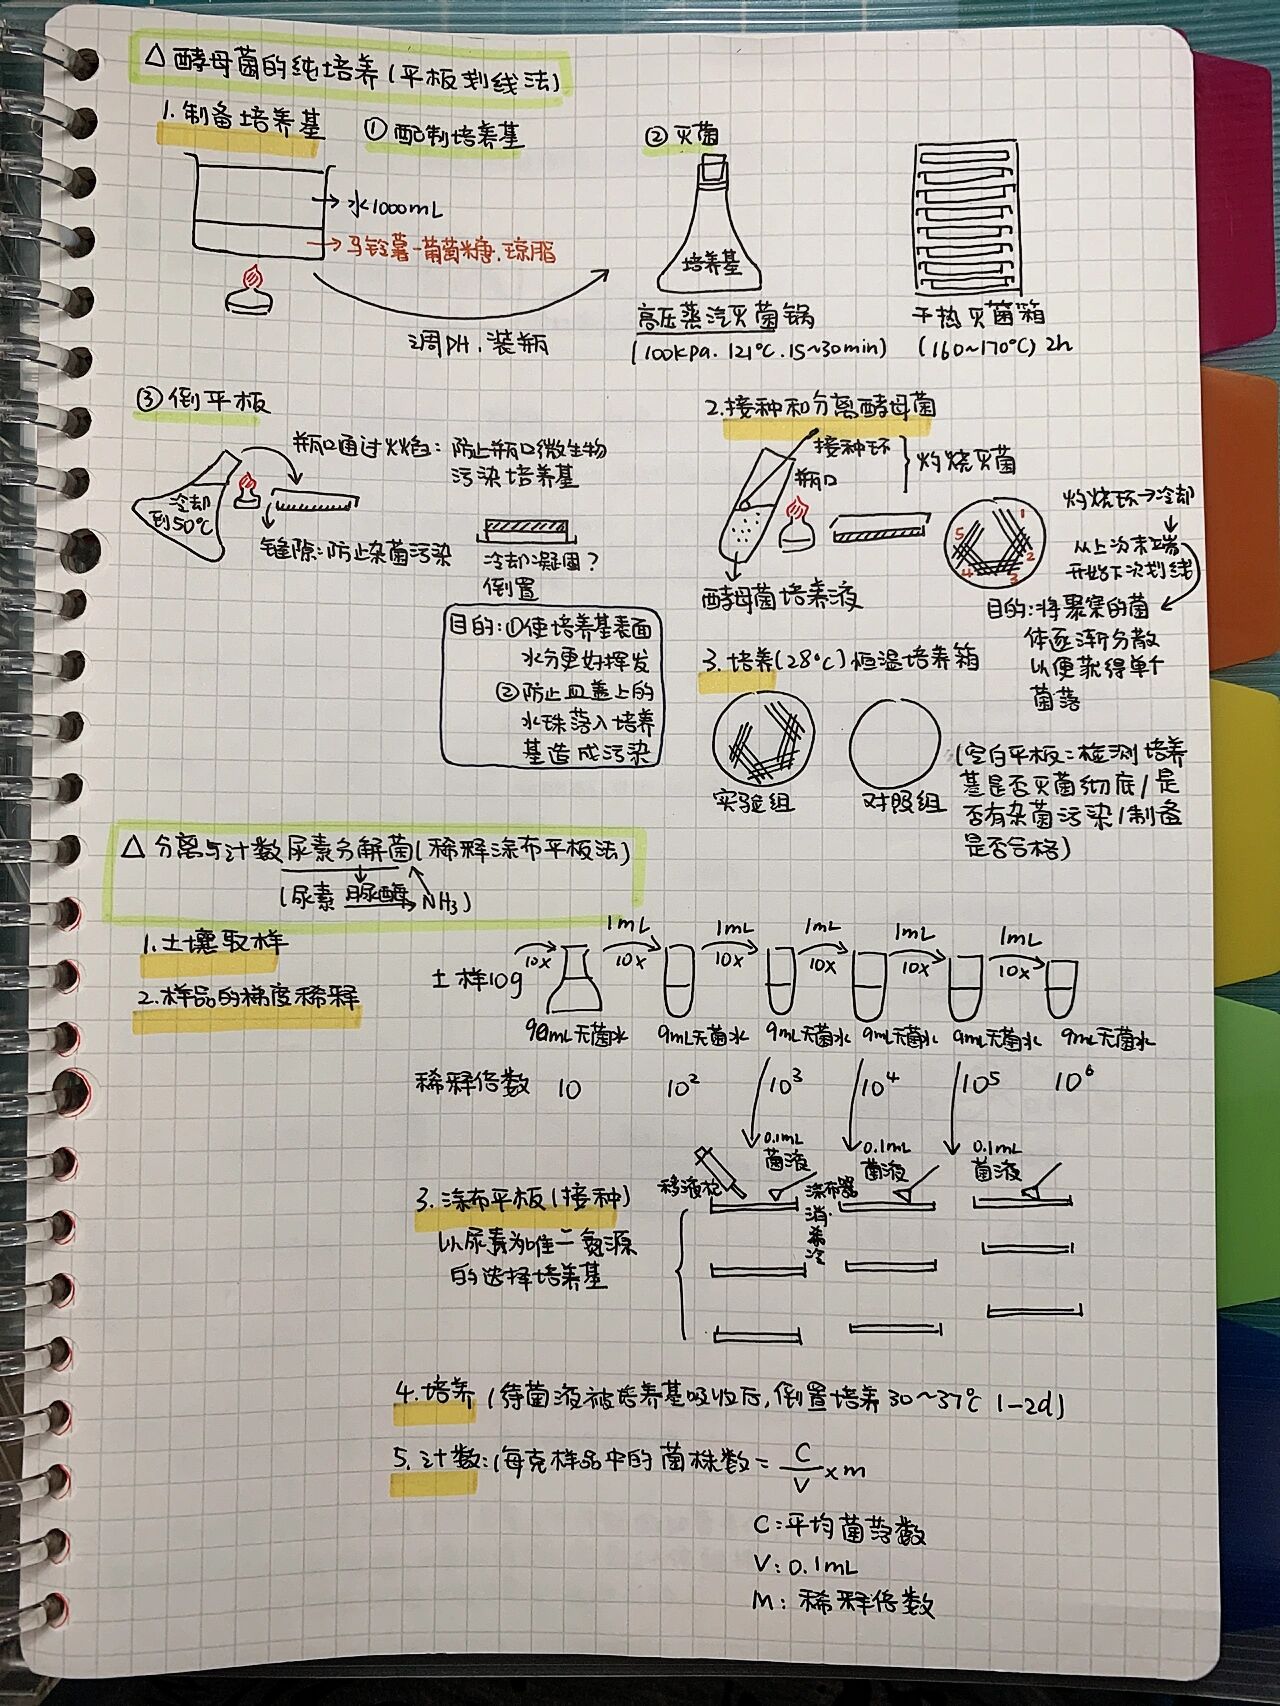 △ 酵母菌的纯培养(平板划线法)
1. 制备培养基 ① 配制培养基
→水1000mL
→马铃薯-葡萄糖.琼脂
调PH.装瓶
② 灭菌
培养基
高压蒸汽灭菌锅
(100kpa.121℃.15~30min)
干热灭菌箱
(160~170℃) 2h
③ 倒平板
瓶口通过火焰: 防止瓶口微生物
污染培养基
冷却
到50℃
缝隙:防止杂菌污染
冷却凝固?
倒置
目的:①使培养基表面
水分更好挥发
②防止皿盖上的
水珠落入培养
基造成污染
2.接种和分离酵母菌
接种环
瓶口
灼烧灭菌
酵母菌培养液
1
2
3
4
5
灼烧环→冷却
从上次末端
开始下次划线
目的:将聚集的菌
体逐渐分散
以便获得单个
菌落
3. 培养(28℃)恒温培养箱
实验组
对照组
(空白平板:检测培养
基是否灭菌彻底/是
否有杂菌污染/制备
是否合格)
△ 分离与计数尿素分解菌(稀释涂布平板法)
(尿素 脲酶→ NH3)
1.土壤取样
2.样品的梯度稀释
1mL 1mL 1mL 1mL 1mL
10x 10x 10x 10x 10x 10x
土样10g
90mL无菌水 9mL无菌水 9mL无菌水 9mL无菌水 9mL无菌水 9mL无菌水
稀释倍数 10 10² 10³ 10⁴ 10⁵ 10⁶
0.1mL
菌液
0.1mL
菌液
0.1mL
菌液
移液枪
涂布器
3. 涂布平板(接种)
以尿素为唯一氮源
的选择培养基
4.培养 (待菌液被培养基吸收后,倒置培养 30~37℃ 1-2d)
5. 计数:(每克样品中的菌株数= C/V ×m
C:平均菌落数
V: 0.1mL
M: 稀释倍数